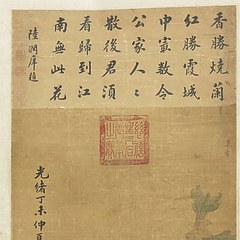 香勝燒蘭
紅勝霞城
中最數令
公家人〻
散後君須
看歸到江
南無此花
陸潤庠題
光緒丁未仲夏